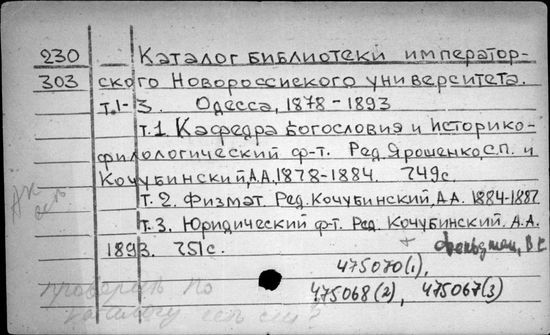 230 Каталог библиотеки император-
303 ского Новороссийского университета.
т.1-3. Одесса, 1878-1893
т.1 Кафедра богословия и историко-
филологический ф-т. Ред. Ярошенко, С.П. и
Кочубинский, А.А. 1878-1884. 749с.
т. 2. Физмат. Ред. Кочубинский, А.А. 1884-1887
т.3. Юридический ф-т. Ред. Кочубинский, А.А.
1893. 751с. + Фельдман, В
475070(1),
проверить по 475068(2), 475067(3)
каталогу